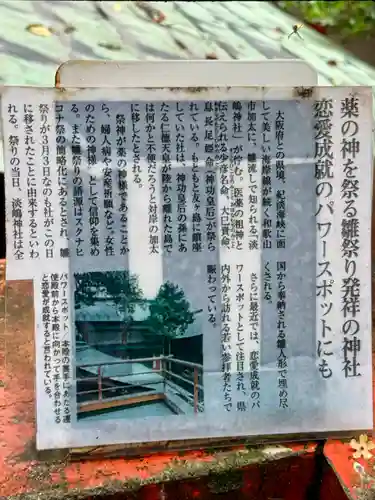 薬の神を祭る雛祭り発祥の神社
恋愛成就のパワースポットにも
大阪府との県境、紀淡海峡に面
して美しい海岸線が続く和歌山
市加太に、雛流しで知られる「淡
嶋神社」が佇む。医薬の祖神と
伝えられる少彦名命、大己貴命、
息長足姫命（神功皇后）が祭ら
れている。もともと友ヶ島に鎮座
していた社は、神功皇后の孫にあ
たる仁徳天皇が時から離れた島で
は何かと不便だろうと対岸の加太
に移したとされる。
祭神が薬の神様であることか
ら、婦人病や安産祈願など、女性
のための神様、として信仰を集め
る。また雛祭りの語源はスクナヒ
コナ祭の簡略化にあるとされ、雛
祭りが3月3日なのも社がこの日
に移されたことに由来するといわ
れる。祭りの当日、淡嶋神社は全
国から奉納される雛人形で埋め尽
くされる。
さらに最近では、恋愛成就のパ
ワースポットとして注目され、県
内外から訪れる若い参拝者たちで
賑わっている。
パワースポット、本殿の裏手にあたる末
使殿前から本殿に向かって手を合わせる
と恋愛が成就すると言われている。